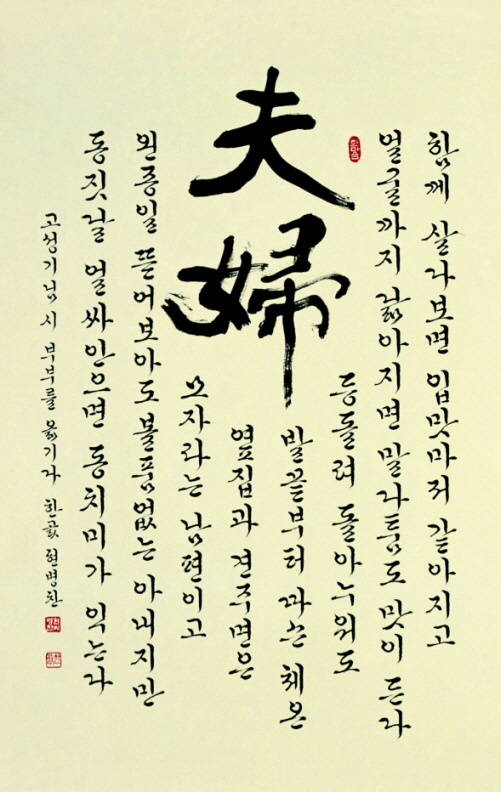 夫婦
함께 살다보면 입맛마저 같아지고
얼굴까지 닮아지면 말다툼도 맛이 든다
등돌려 돌아누워도
발끝부터 따슨 체온
옆집과 견주면은
모자라는 남편이고
왼종일 뜯어보아도 볼품없는 아내지만
동짓날 얼싸안으면 동치미가 익는다
고성기님 시 부부를 옮기다 한곬 현병찬